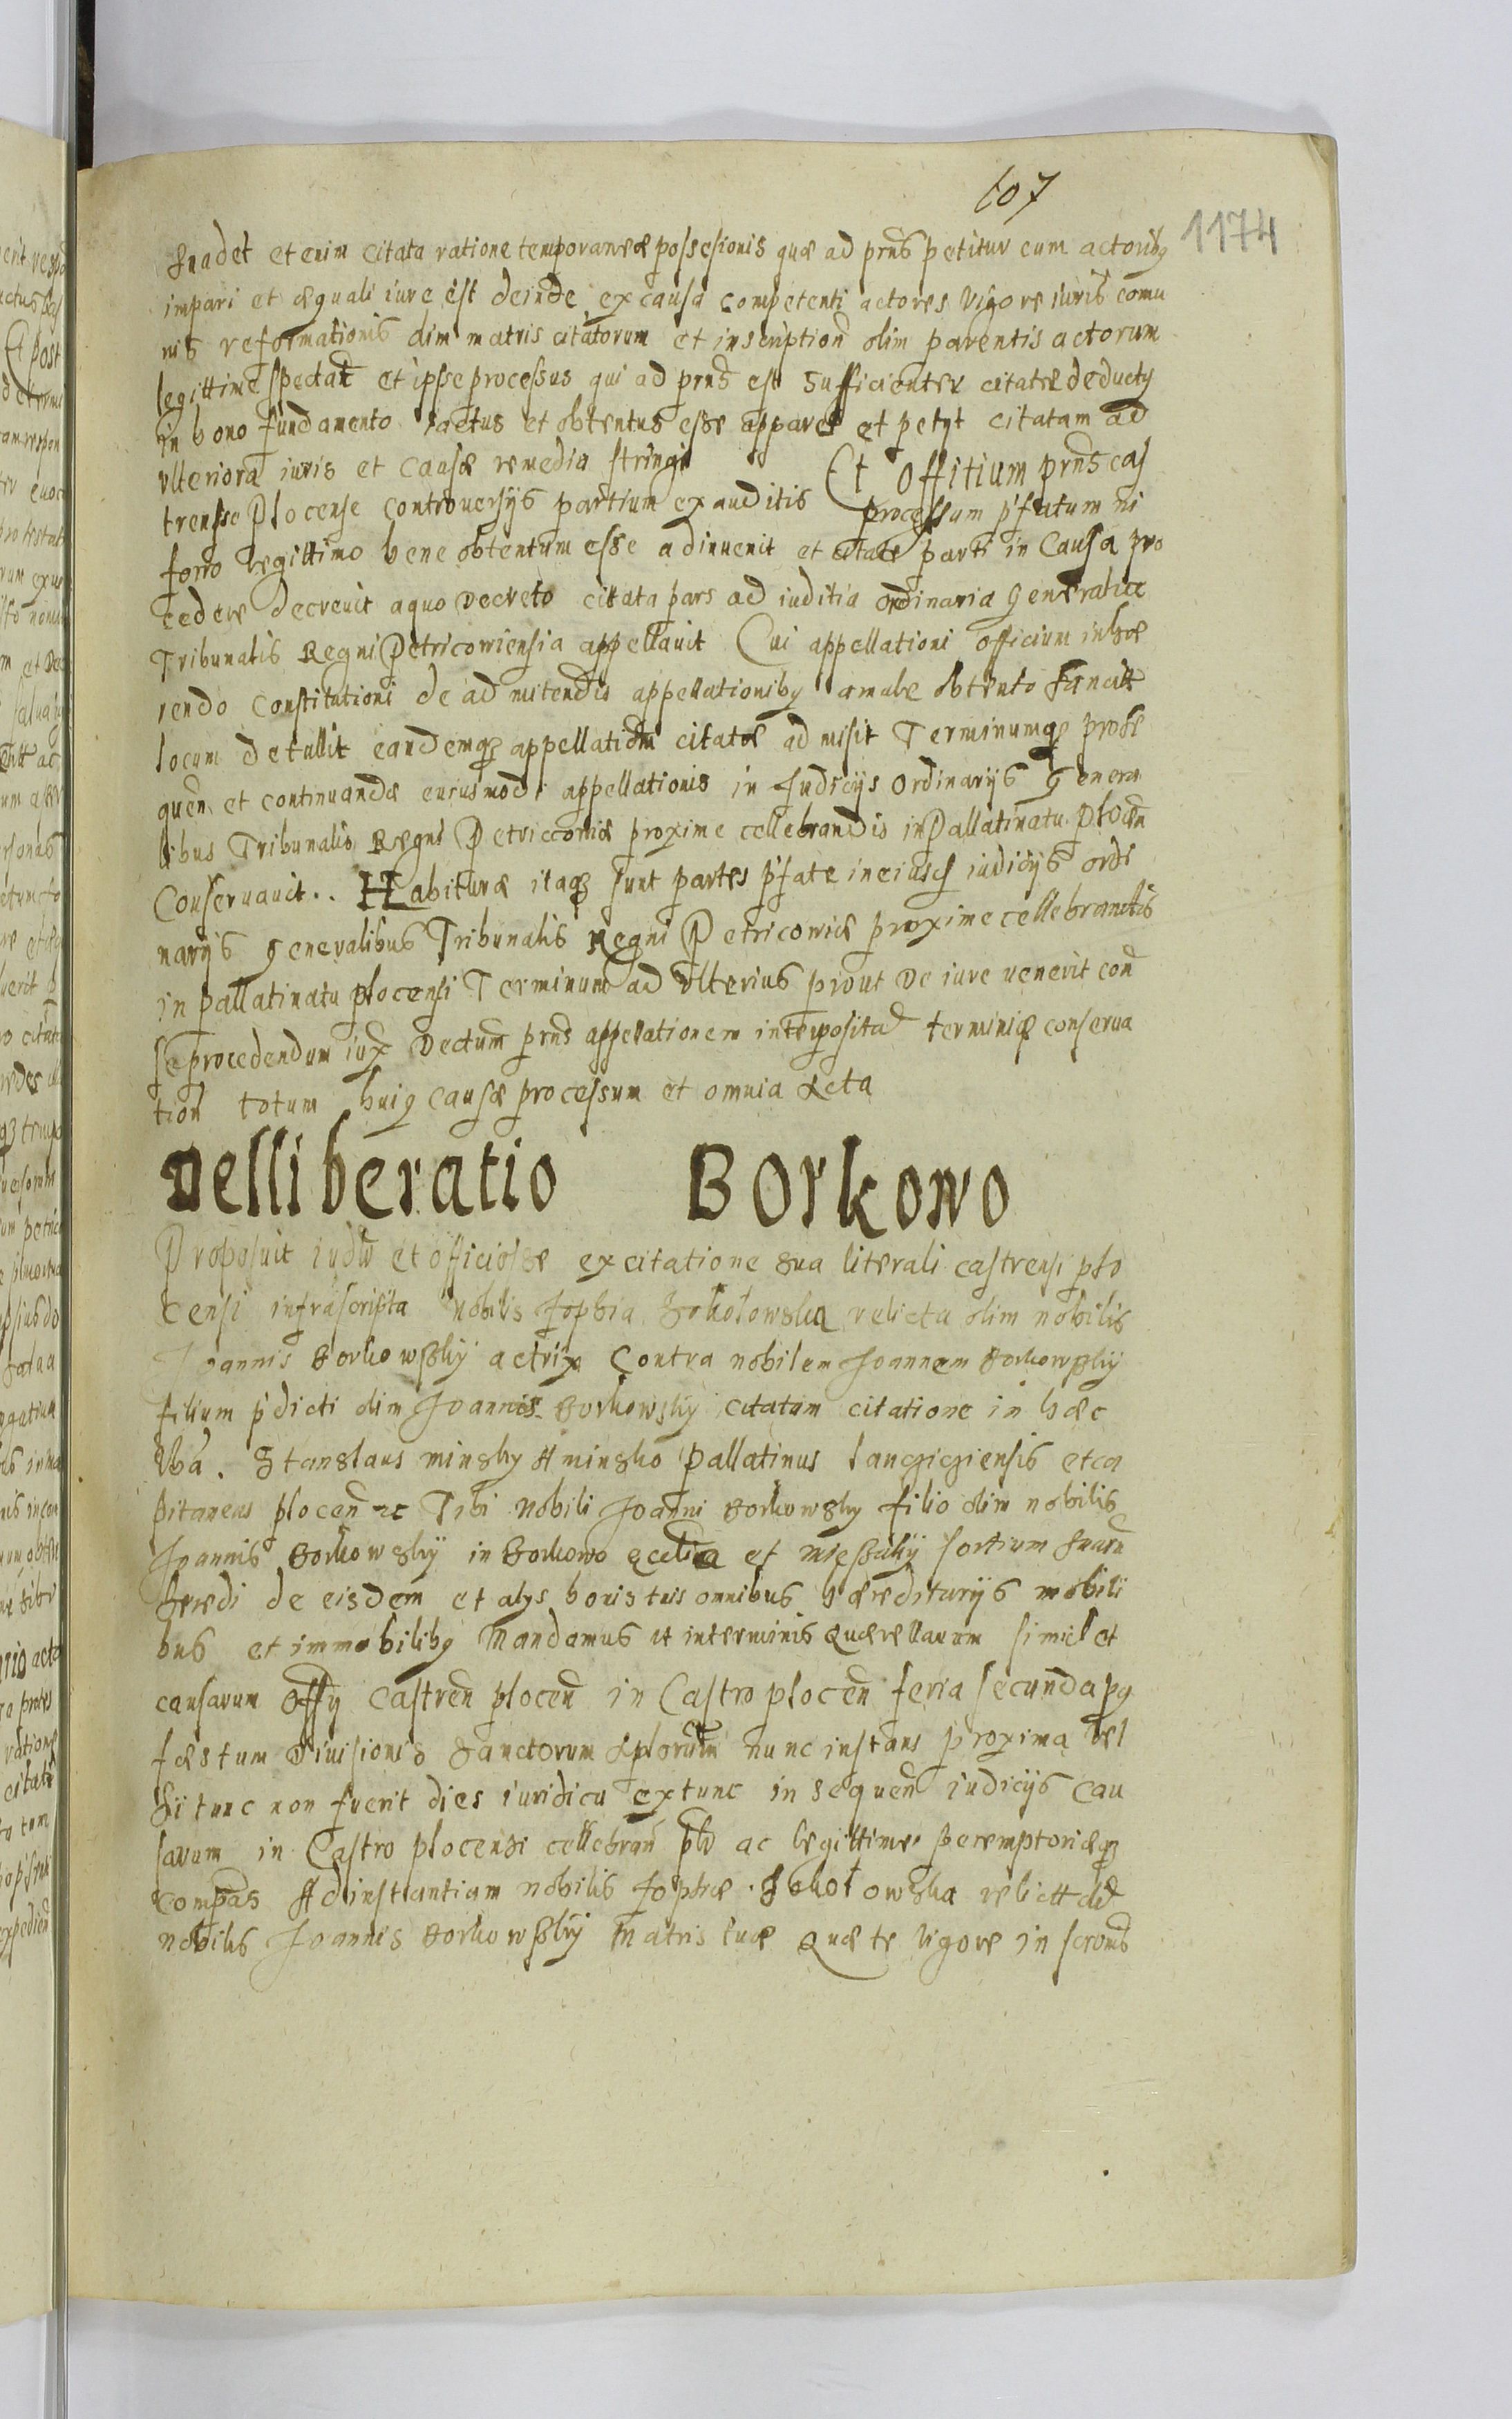 107
1174
suadet et enim citata ratione temporaneæ possesionis quæ ad prns petitur cum actoribq
impari et æquali iure est deinde ex causa competenti actores vigore iuris comu
nis reformationis olim matris citatorum et inscription olim parentis actorum
legittime spectan et ipse processus qui ad prns est sufficienter citatæ deductq
in bono fundamento factus et obtentus esse appares et petyt citatam ad
vlteriora iuris et Causæ remedia stringi Et offitium prns cas
trense Plocense controuersijs partium exauditis processum pfatum ni
forro legittimo bene obtentum esse adinuenit et citatæ parti in Causa pro
cedere decreuit aquo decreto citata pars ad iuditia ordinaria generalia
Tribunalis Regni Petricowiensia appellauit Cui appellationi officium inhæ
rendo Constitutioni de ad mitendis appellationibq
locum detullit eandemqz appellation citatæ admisit Terminumqz prose
quen et continuandæ euiusmodi appellationis in Judicijs ordinarijs Genera
libus Tribunalis Regni Petricconiæ proxime cellebrandis in Pallatinatu Plocen
Conseruauit.. Habituræ itaqz sunt partes pfate in eiusd iudicijs ordi
narijs generalibus Tribunalis Regni Petriconiæ proxime cellebrandis
in Pallatinatu plocensi Terminum ad vlterius prout de iure uenerit con
se procedendum iux Dectum prns appellationem interposita terminiqz conserua
tion totum huiq causæ processum et omnia acta
Delliberatio Borkowo
Proposuit iudw et officiosse ex citatione sua literali castrensi plo
censi infrascripta Nobilis Zophia Sokolowska relicta olim nobilis
Joannis Borkowskÿ actrix Contra nobilem Joannem Borkowskÿ
filium pdicti olim Joannis Borkowskÿ citatum citatione in hæc
vba. Stanslaus minsky A minsko Pallatinus lancziciensis et ca
pitaneus plocen zc Tibi Nobili Joanni Borkowsky filio olim nobilis
Joannis Borkowskÿ in Borkowo et sortium suarū
heredi de eisdem et alys bonis tuis omnibus hæreditarijs mobili
bus et immobilibq Mandamus ut interminis Quærellarum simul et
causarum Offy Castren plocen in Castro plocen feria secunda pq
fæstum Diuisionis Sanctorum Aplorum nunc instans proxima vel
si tunc non fuerit dies iuridica extunc in sequen iudicijs cau
sarum in Castro plocensi cellebran plr ac legittime peremptorieqz
compas Ad instantiam nobilis Zophiæ Sokolowska relictæ olim
nobilis Joannis Borkowskÿ Matris tuæ Quæ te vigore in